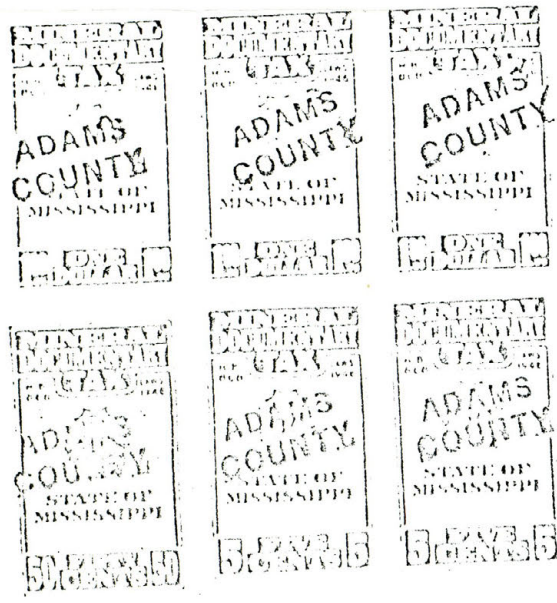 MINERAL
DOCUMENTARY
TAX
ADAMS
COUNTY
STATE OF
MISSISSIPPI
ONE
DOLLAR
MINERAL
DOCUMENTARY
TAX
ADAMS
COUNTY
STATE OF
MISSISSIPPI
ONE
DOLLAR
MINERAL
DOCUMENTARY
TAX
ADAMS
COUNTY
STATE OF
MISSISSIPPI
ONE
DOLLAR
MINERAL
DOCUMENTARY
TAX
ADAMS
COUNTY
STATE OF
MISSISSIPPI
50 CENTS 50
MINERAL
DOCUMENTARY
TAX
ADAMS
COUNTY
STATE OF
MISSISSIPPI
5 FIVE CENTS 5
MINERAL
DOCUMENTARY
TAX
ADAMS
COUNTY
STATE OF
MISSISSIPPI
5 FIVE CENTS 5